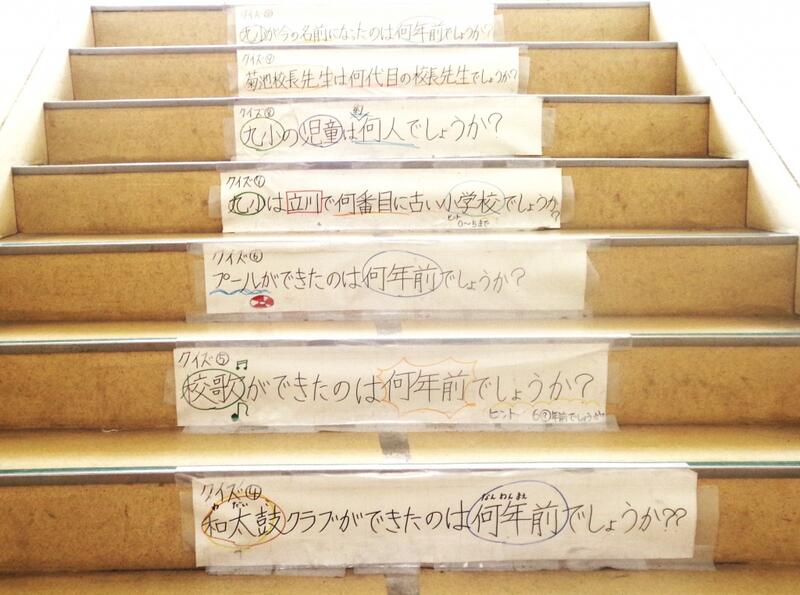 クイズ③
九小が今の名前になったのは何年前でしょうか?
クイズ②
菊池校長先生は何代目の校長先生でしょうか?
クイズ⑧
約
九小の児童は何人でしょうか?
クイズ①
九小は立川で何番目に古い小学校でしょうか??
ヒント 0〜5まで
クイズ⑥
プールができたのは何年前でしょうか?
クイズ⑤
校歌ができたのは何年前でしょうか?
ヒント 6?年前でしょうか
クイズ④
わ だい なんねんまえ
和太鼓クラブができたのは何年前でしょうか??